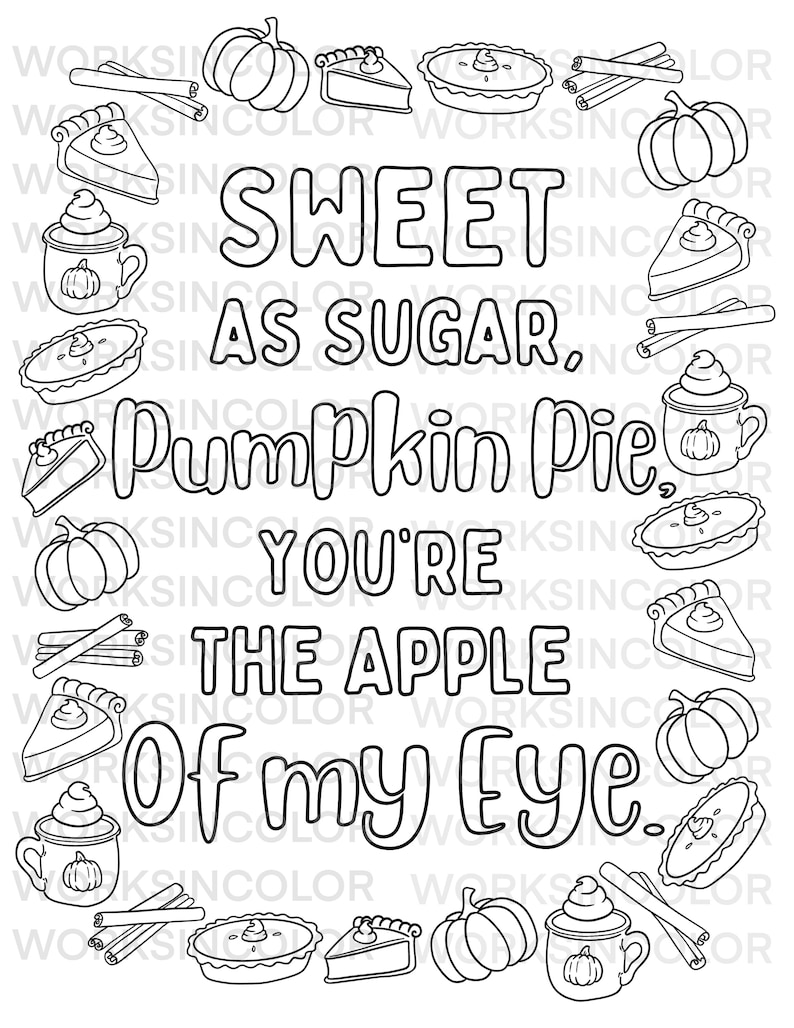 SWEET
AS SUGAR,
Pumpkin Pie,
YOU'RE
THE APPLE
Of my Eye.
WORKSINCOLOR